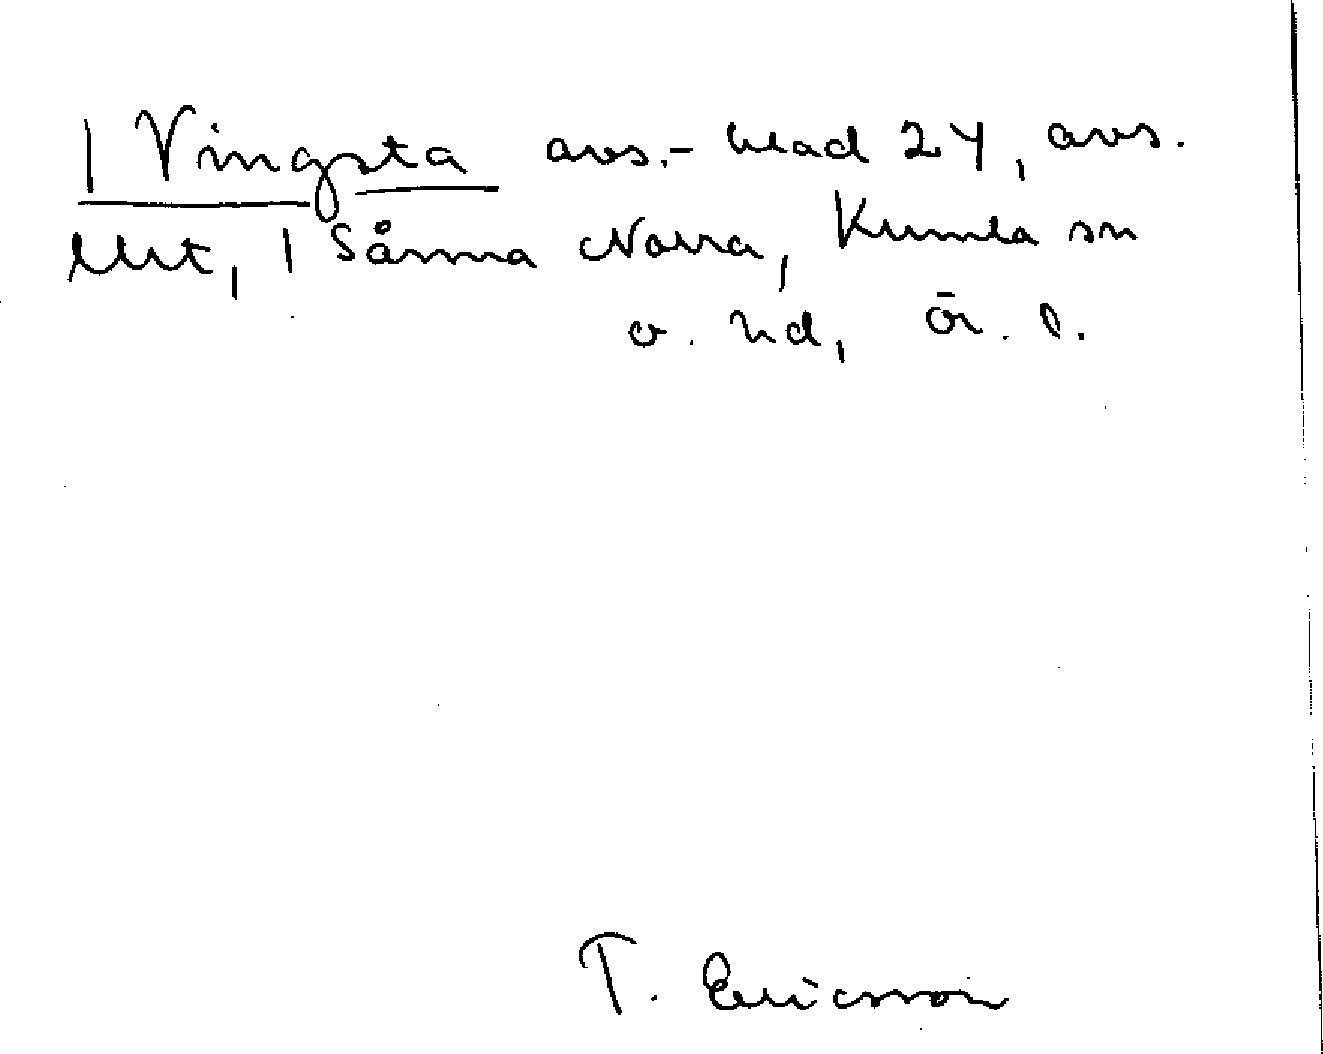 | Vingsta avs.- blad 24, avs.
utt, | Sånna Norra, Kumla sn
o. hd, Ör. l.
T. Ericsson